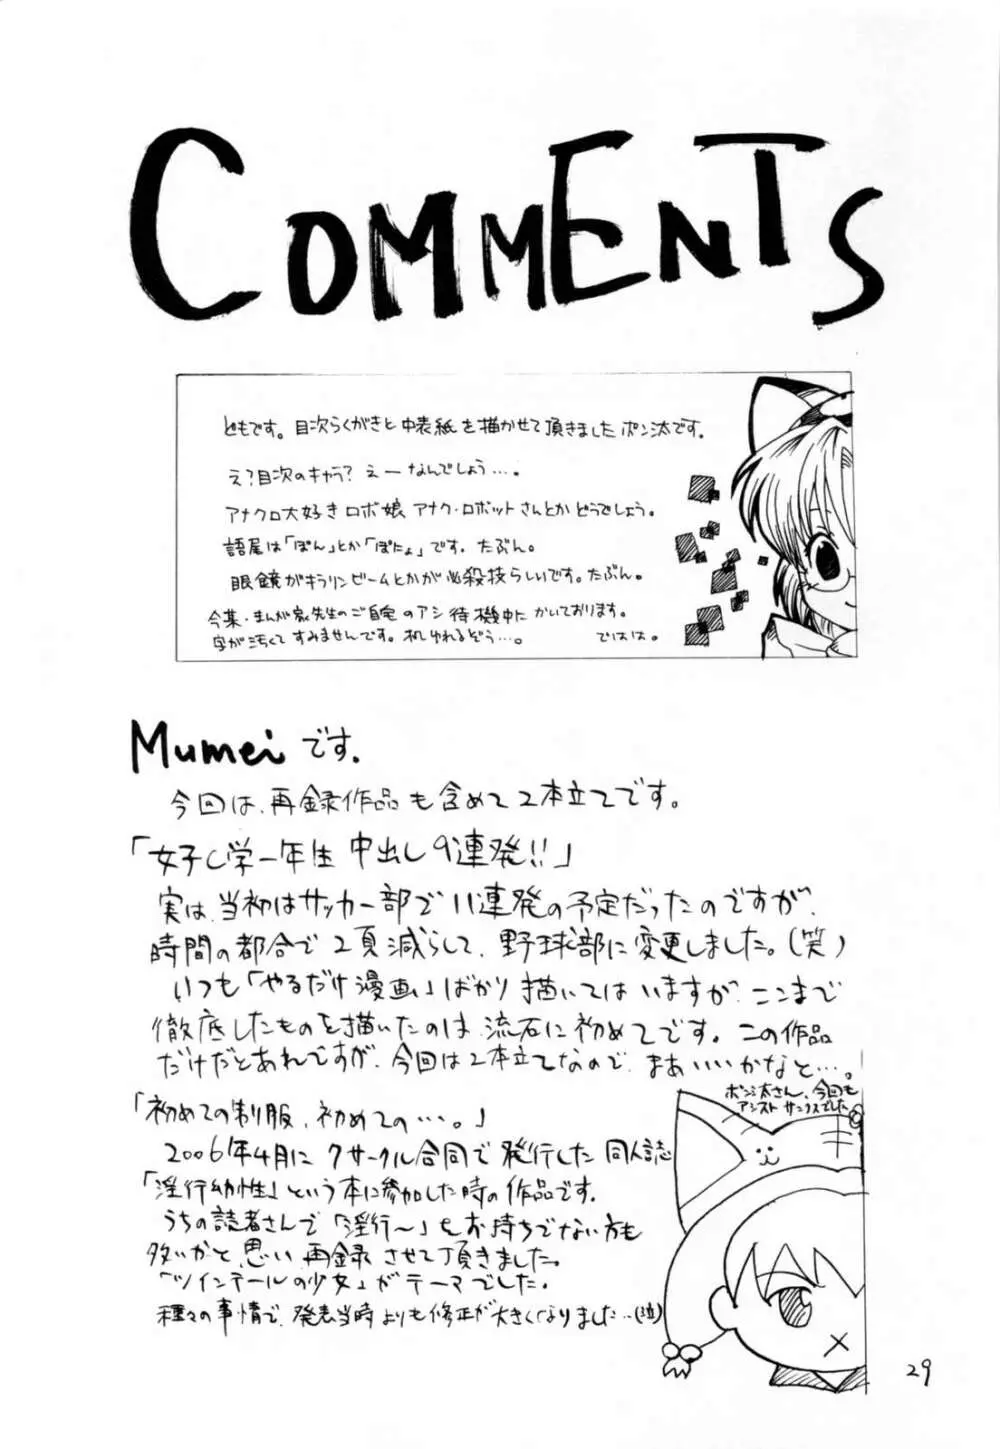 COMMENTS
ども です。目次らくがきと中表紙を描かせて頂きましたポン汰です。
え?目次のキャラ? えーなんでしょう…。
アナクロ大好きロボ娘 アナク・ロボットさんとかどうでしょう。
語尾は「ぽん」とか「ぽによ」です。たぶん。
眼鏡がキラリンビームとかが必殺技らしいです。たぶん。
今某・まんが家先生のご自宅のアシ待機中にかいております。
字が汚くてすみませんです。机ゆれるぞう…。 ではは。
Mumeiです.
今回は、再録作品も含めて2本立てです。
「女子C学一年生 中出し9連発!!」
実は、当初はサッカー部で11連発の予定だったのですが、
時間の都合で2頁減らして、野球部に変更しました。(笑)
いつも「やるだけ漫画」ばかり描いてはいますが、ここまで
徹底したものを描いたのは、流石に初めてです。この作品
だけだとあれですが、今回は2本立てなので、まあいいかなと…。
ポン汰さん、今回も
アシスト サンクスでした
「初めての制服、初めての…。」
2006年4月に 7サークル合同で発行した同人誌
「淫行幼性」という本に参加した時の作品です。
うちの読者さんで「淫行〜」をお持ちでない方も
多いかと思い、再録させて頂きました。
「ツインテールの少女」がテーマでした。
種々の事情で、発表当時よりも修正が大きくなりました…(泣)
29